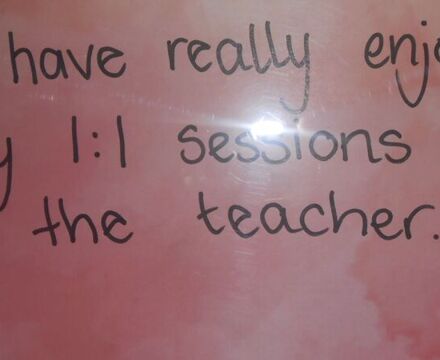 have really enj
y 1:1 sessions
the teacher.